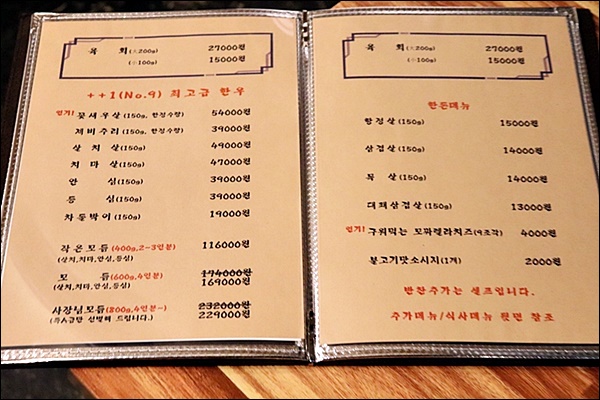 육 회 (大200g) 27000원
(小100g) 15000원
++1(No.9) 최고급 한우
인기! 꽃새우살 (150g, 한정수량) 54000원
제비추리 (150g, 한정수량) 39000원
살 치 살 (150g) 49000원
치 마 살 (150g) 47000원
안 심 (150g) 39000원
등 심 (150g) 39000원
차돌박이 (150g) 19000원
작은모듬 (400g, 2~3인분) 116000원
(살치,치마,안심,등심)
모 듬 (600g, 4인분) 174000원
(살치,치마,안심,등심) 169000원
사장님모듬 (800g, 4인분~) 232000원
(특A급만 선별해 드립니다.) 229000원
육 회 (大200g) 27000원
(小100g) 15000원
한돈메뉴
항정살 (150g) 15000원
삼겹살 (150g) 14000원
목 살 (150g) 14000원
대패삼겹살 (150g) 13000원
인기! 구워먹는 모짜렐라치즈 (9조각) 4000원
불고기맛소시지 (1개) 2000원
반찬추가는 셀프입니다.
추가메뉴/식사메뉴 뒷면 참조